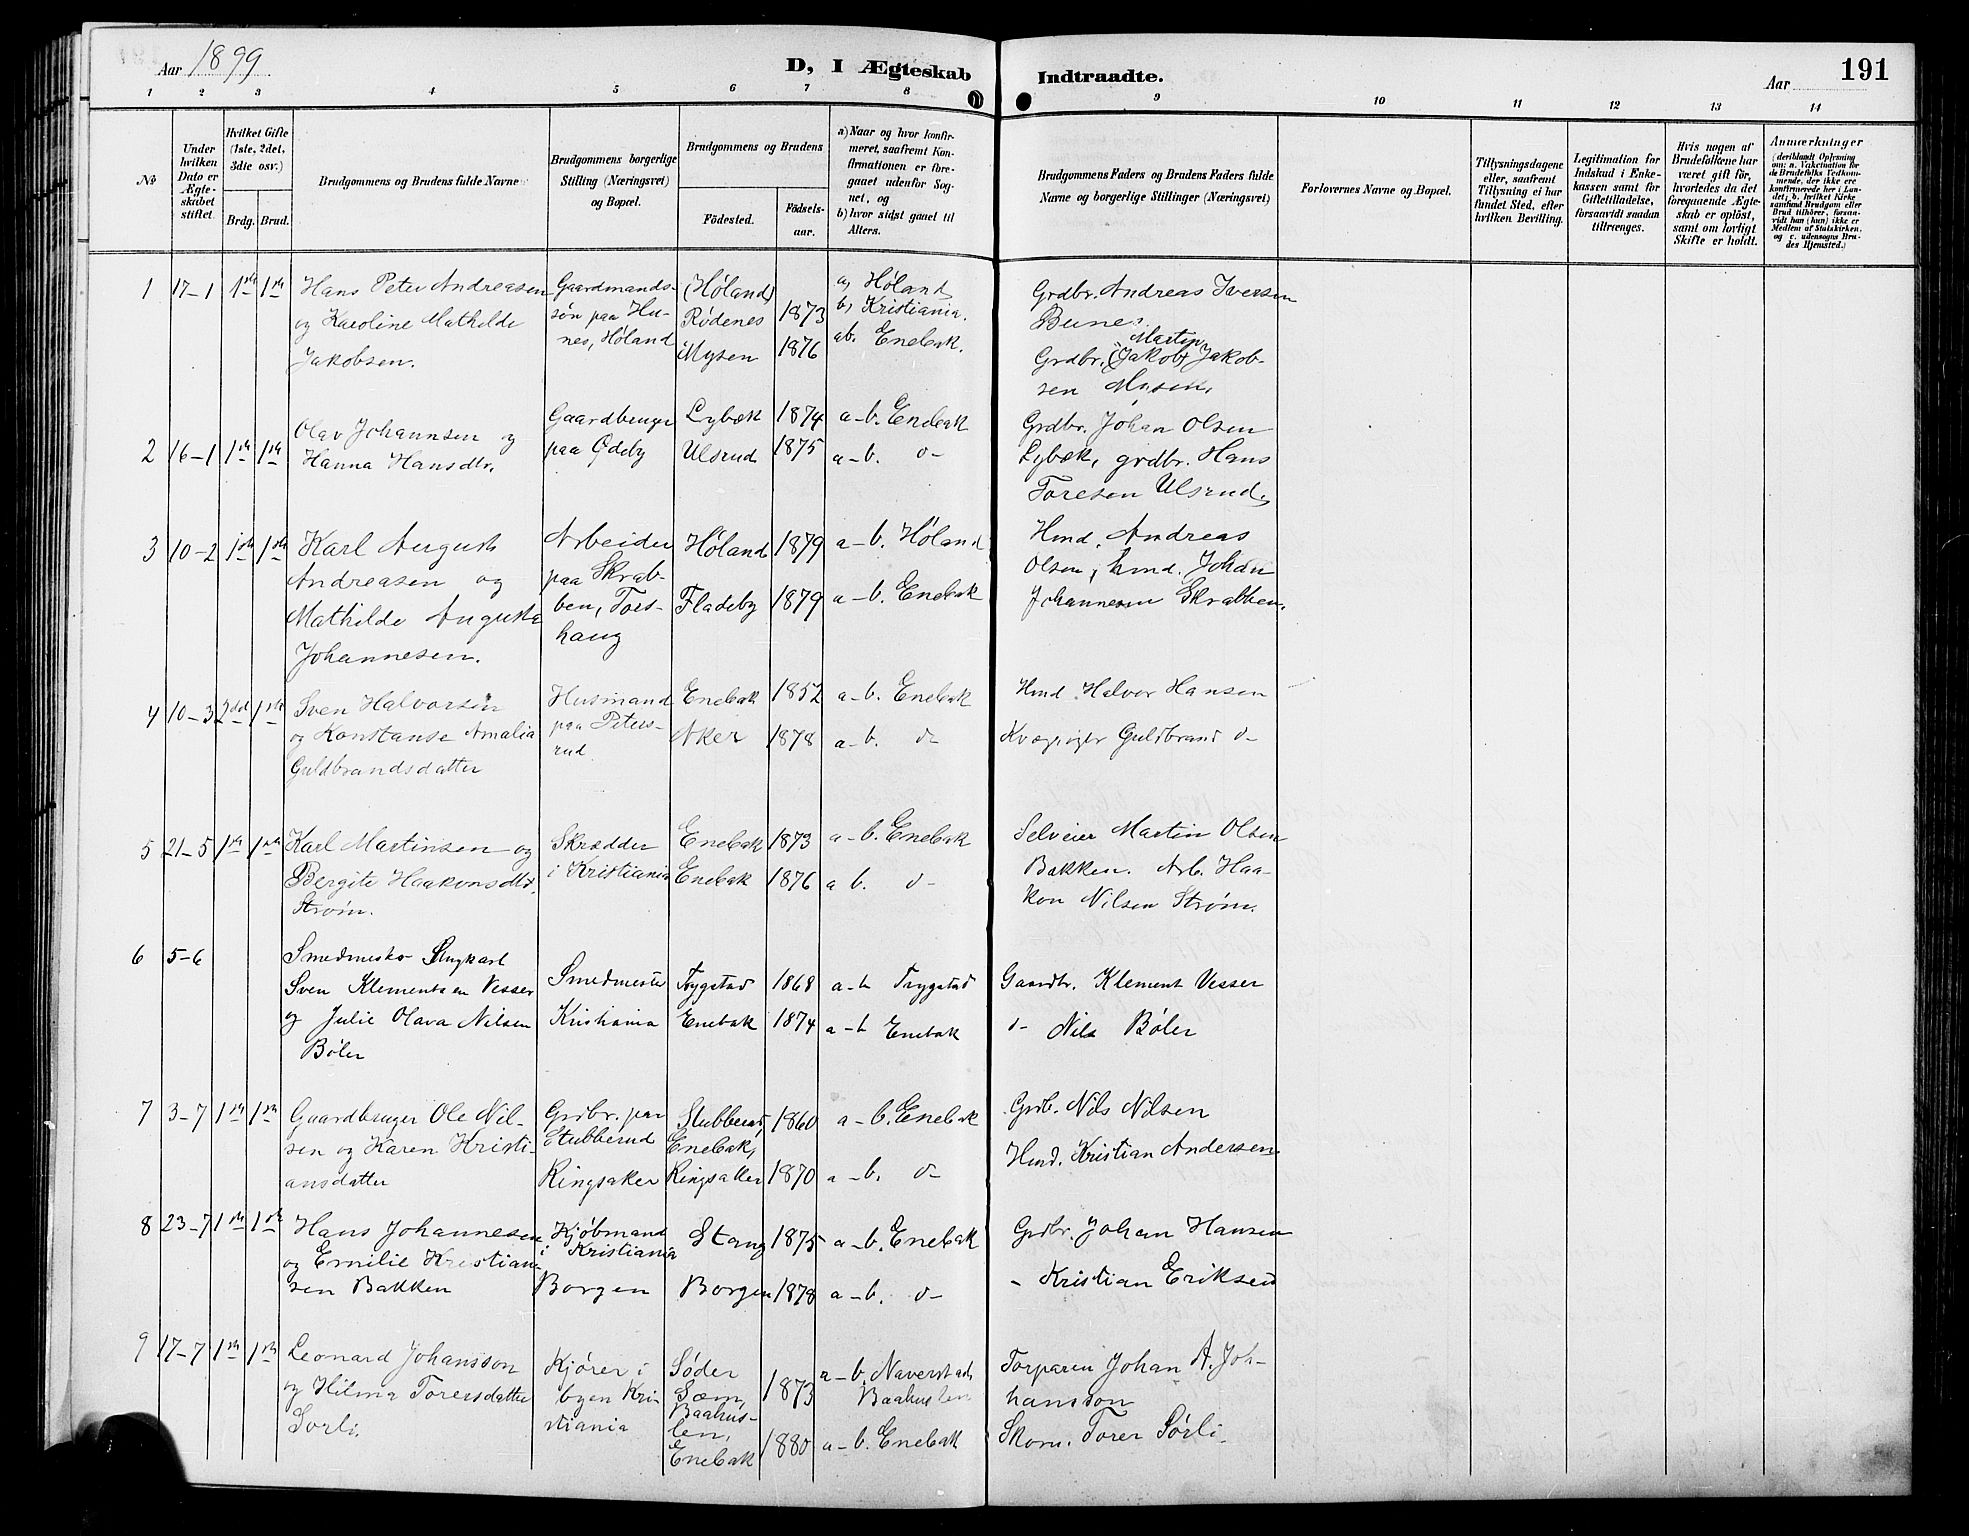 Aar 1899
D, I Ægteskab
Indtraadte.
Aar
191
1 2 3 4 5 6 7 8 9 10 11 12 13 14
№
Under hvilken Dato er Ægteskabet stiftet.
Hvilket Gifte (1ste, 2det, 3die osv.)
Brdg. Brud.
Brudgommens og Brudens fulde Navne
Brudgommens borgerlige Stilling (Næringsvei) og Bopæl.
Brudgommens og Brudens
Födested.
Födselsaar.
a) Naar og hvor konfirmeret, saafremt Konfirmationen er foregaaet udenfor Sognet, og
b) hvor sidst gaaet til Alters.
Brudgommens Faders og Brudens Faders fulde Navne og borgerlige Stillinger (Næringsvei)
Forlovernes Navne og Bopæl.
Tillysningsdagene eller, saafremt Tillysning ei har fundet Sted, efter hvilken Bevilling.
Legitimation for Indskud i Enkekassen samt for Giftetilladelse, forsaavidt saadan tiltrænges.
Hvis nogen af Brudefolkene har været gift för, hvorledes da det foregaaende Ægteskab er oplöst, samt om lovligt Skifte er holdt.
Anmærkninger
(deriblandt Oplysning om: a. Vakcination for de Brudefolks Vedkommende, der ikke ere konfirmerede her i Landet; b. hvilket Kirkesamfund Brudgom eller Brud tilhörer, forsaavidt han (hun) ikke er Medlem af Statskirken, og c. udensogns Brudes Hjemsted.)
1 17-1 1ste 1ste Hans Peter Andreasen Gaardmands- (Høland) a, Høland Grdbr. Andreas Iversen
og Karoline Mathilde søn paa Hu- Rødenes 1873 b, Kristiania. Bunes
Jakobsen. nes, Høland Mysen 1876 ab. Enebak. Grdbr. (Jakob) Martin Jakob-
sen Mysen.
2 16-1 1ste 1ste Olav Johannsen og Gaardbruger Lybæk 1874 a-b. Enebak Grdbr. Johan Olsen
Hanna Hansdtr. paa Ødeby Ulsrud 1875 a-b. d- Lybæk, grdbr. Hans
Toresen Ulsrud.
3 10-2 1ste 1ste Karl August Arbeider Høland 1879 a-b. Høland Hmd. Andreas
Andreasen og paa Skrab- Olsen, hmd. Johan
Mathilde Augusta ben, Tors- Fladeby 1879 a-b. Enebak Johannesen Skrabben.
Johannesen. haug
4 10-3 2det 1ste Sven Halvorsen Husmand Enebak 1852 a-b. Enebak Hmd. Halvor Hansen
og Konstanse Amalia paa Peters- Aker 1878 a-b. d- Kvægrøgt Guldbrand d-
Guldbrandsdatter rud
5 21-5 1ste 1ste Karl Martinsen og Skrædder Enebak 1873 a-b. Enebak Selveier Martin Olsen
Bergite Haakonsdtr. i Kristiania Enebak 1876 a b. d- Bakken. Arb. Haa-
Strøm. kon Nilsen Strøm.
6 5-6 Smedmester Ungkarl
Sven Klementsen Vesser Smedmester Trygstad 1868 a-b Trygstad Gaardbr. Klement Vesser
og Julie Olava Nilsen Kristiania Enebak 1874 a-b Enebak d- Nils Böler
Böler
7 3-7 1ste 1ste Gaardbruger Ole Nil- Grdbr. paa Stubberud, 1860 a-b. Enebak Grdb. Nils Nilsen
sen og Karen Kristi- Stubberud Enebak, Hmd. Kristian Andersen
ansdatter Ringsaker Ringsaker 1870 a-b. d-
8 23-7 1ste 1ste Hans Johannesen Kjøbmand Stang 1875 a-b. Enebak Grdbr. Johan Hansen
og Emilie Kristian- i Kristiania
sen Bakken Borgen Borgen 1878 a-b. d- - Kristian Eriksen
9 17-7 1ste 1ste Leonard Johansson Kjører i Søder a-b. Naverstad, Torparen Johan A. Joh-
og Hilma Torersdatter byen Kri- Sæm, 1873 Baahuslen hansson
Sorli. stiania Baahus-
len,
Enebak 1880 a-b. Enebak Skom. Torer Sørli.